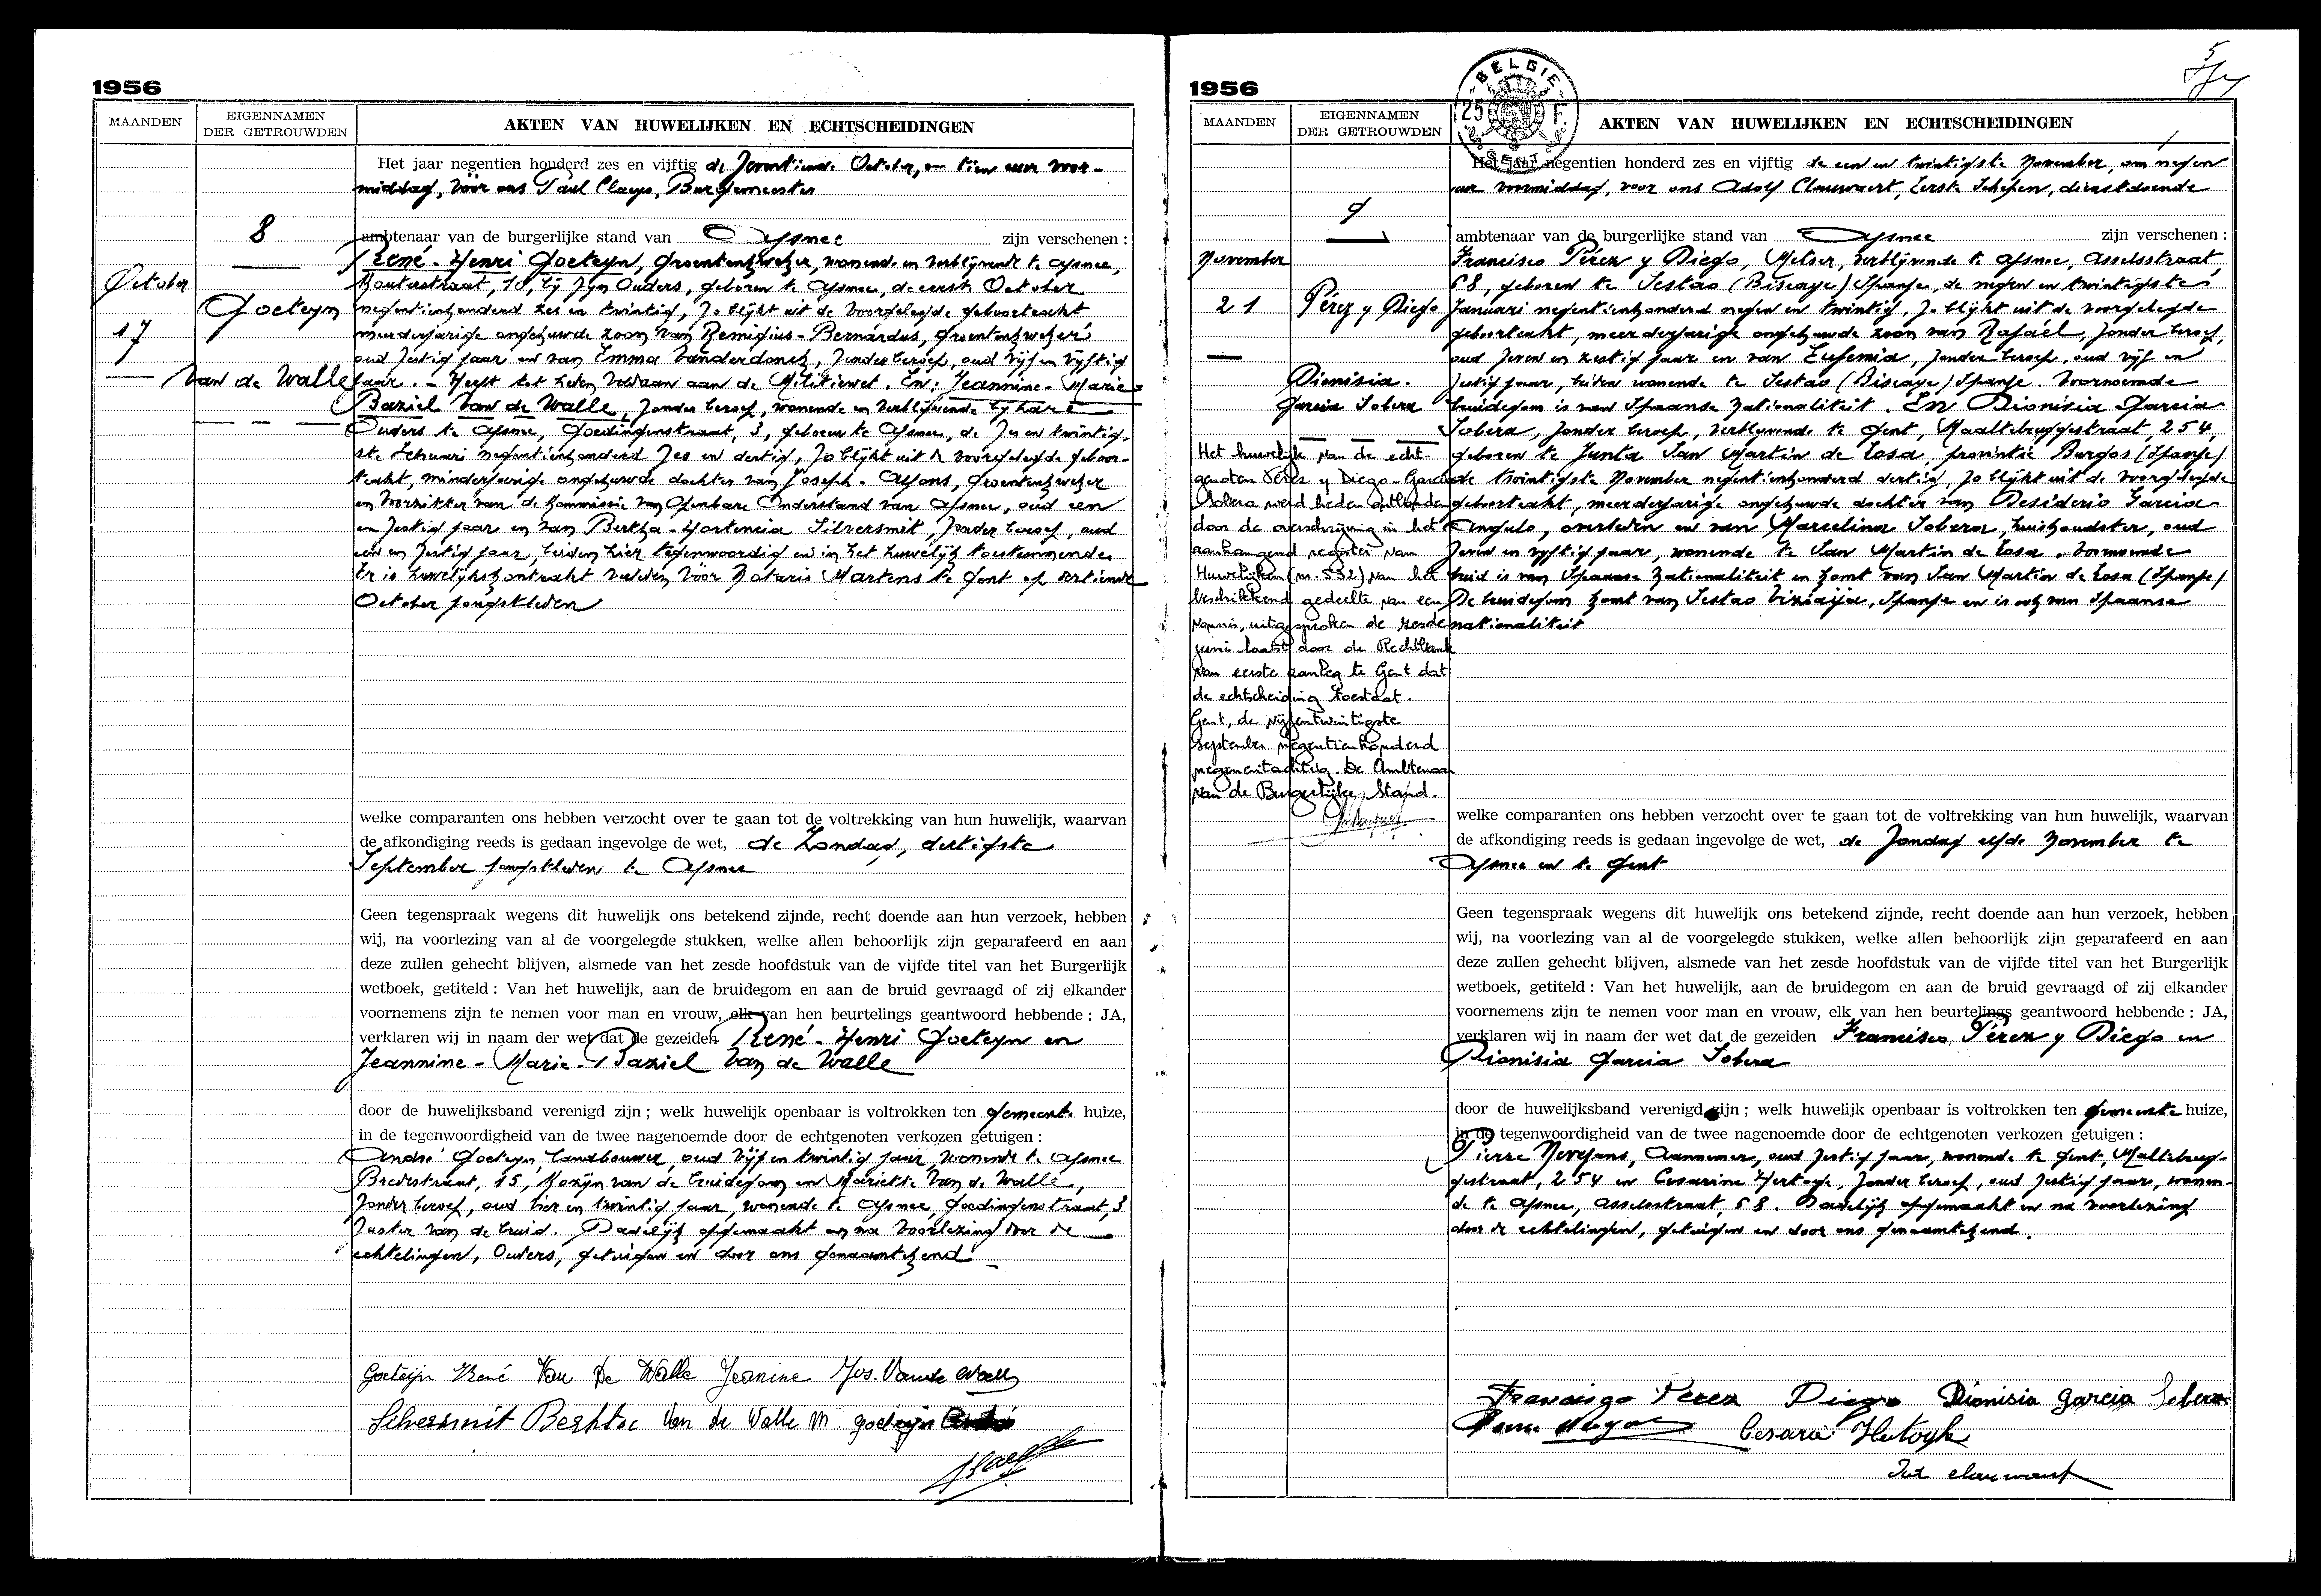 1956
MAANDEN
EIGENNAMEN
DER GETROUWDEN
AKTEN VAN HUWELIJKEN EN ECHTSCHEIDINGEN
8
October
17
Goeteyn
Van de Walle
Het jaar negentien honderd zes en vijftig de zeventiende October, om tien uur voor-
middag, vóór ons Paul Claeys, Burgemeester
ambtenaar van de burgerlijke stand van Afsnee zijn verschenen :
René-Henri Goeteyn, groentenkweker, wonende en verblijvende te Afsnee,
Kouterstraat, 10, bij zijn Ouders, geboren te Afsnee, de eerste October
negentienhonderd zes en twintig, zo blijkt uit de voorgelegde geboorteakt
meerderjarige ongehuwde zoon van Remigius-Bernardus, groentenkweker
oud zestig jaar en van Emma Vanderdonck, zonder beroep, oud vijf en vijftig
jaar. - Heeft tot heden voldaan aan de Militiewet. En: Jeannine-Marie-
Baziel Van de Walle, zonder beroep, wonende en verblijvende bij hare
Ouders te Afsnee, Goedingenstraat, 3, geboren te Afsnee, de zes en twintig-
ste Februari negentienhonderd zes en dertig, zo blijkt uit de voorgelegde geboor-
teakt, minderjarige ongehuwde dochter van Joseph-Alfons, groentenkweker
en Voorzitter van de Kommissie van Openbare Onderstand van Afsnee, oud een
en zestig jaar en van Bertha-Hortencia Silversmit, zonder beroep, oud
een en zestig jaar, beiden hier tegenwoordig en in het huwelijk toestemmende.
Er is huwelijkskontrakt verleden vóór Notaris Martens te Gent op dertiende
October jongstleden
welke comparanten ons hebben verzocht over te gaan tot de voltrekking van hun huwelijk, waarvan
de afkondiging reeds is gedaan ingevolge de wet, de Zondag, dertigste
September jongstleden te Afsnee
Geen tegenspraak wegens dit huwelijk ons betekend zijnde, recht doende aan hun verzoek, hebben
wij, na voorlezing van al de voorgelegde stukken, welke allen behoorlijk zijn geparafeerd en aan
deze zullen gehecht blijven, alsmede van het zesde hoofdstuk van de vijfde titel van het Burgerlijk
wetboek, getiteld : Van het huwelijk, aan de bruidegom en aan de bruid gevraagd of zij elkander
voornemens zijn te nemen voor man en vrouw, elk van hen beurtelings geantwoord hebbende : JA,
verklaren wij in naam der wet dat de gezeiden René-Henri Goeteyn en
Jeannine-Marie-Baziel Van de Walle
door de huwelijksband verenigd zijn ; welk huwelijk openbaar is voltrokken ten gemeente huize,
in de tegenwoordigheid van de twee nagenoemde door de echtgenoten verkozen getuigen :
André Goeteyn, landbouwer, oud vijf en twintig jaar, wonende te Afsnee
Broekstraat, 15, Kozijn van de bruidegom en Mariette Van de Walle,
zonder beroep, oud vier en twintig jaar, wonende te Afsnee, Goedingenstraat, 3
zuster van de bruid. Dadelijk opgemaakt en na voorlezing door de
echtelingen, Ouders, getuigen en door ons genaamtekend
Goeteyn René Van De Walle Jeanine Jos. Van de Walle
Silversmit Bertha Van de Walle M. goeteyn André
1956
MAANDEN
EIGENNAMEN
DER GETROUWDEN
AKTEN VAN HUWELIJKEN EN ECHTSCHEIDINGEN
BELGIE
25 F.
9
November
21
Pérez y Diego
Dionisia
Garcia Sobera
Het huwelijk van de echt-
genoten Pérez y Diego-Garcia
Sobera werd heden ontbonden
door de overschrijving in het
aanhangend register van
Huwelijken (nr. 532) van het
beschikkend gedeelte van een
vonnis, uitgesproken de zesde
juni laatst door de Rechtbank
van eerste aanleg te Gent dat
de echtscheiding toestaat.
Gent, de vijfentwintigste
september negentienhonderd
negenentachtig. De Ambtenaar
van de Burgerlijke Stand.
Het jaar negentien honderd zes en vijftig de een en twintigste November, om negen
uur voormiddag, voor ons Adolf Clauwaert, Eerste Schepen, dienstdoende
ambtenaar van de burgerlijke stand van Afsnee zijn verschenen :
Francisco Pérez y Diego, Melser, verblijvende te Afsnee, Asselsstraat,
68, geboren te Sestao (Biscaye) Spanje, de negen en twintigste
Januari negentienhonderd negen en twintig, zo blijkt uit de voorgelegde
geboorteakt, meerderjarige ongehuwde zoon van Rafaël, zonder beroep,
oud zeven en zestig jaar en van Eugenia, zonder beroep, oud vijf en
zestig jaar, beiden wonende te Sestao (Biscaye) Spanje. Voornoemde
bruidegom is van Spaanse Nationaliteit. En Dionisia Garcia
Sobera, zonder beroep, verblijvende te Gent, Maaltebruggestraat, 254,
geboren te Junta San Martin de Losa, provintie Burgos (Spanje)
de twintigste November negentienhonderd dertig, zo blijkt uit de voorgelegde
geboorteakt, meerderjarige ongehuwde dochter van Desiderio Garcia
Angulo, overleden en van Marcelina Sobera, huishoudster, oud
zeven en vijftig jaar, wonende te San Martin de Losa. Voornoemde
bruid is van Spaanse Nationaliteit en komt van San Martin de Losa (Spanje)
De bruidegom komt van Sestao Vizcaya, Spanje en is ook van Spaanse
nationaliteit
welke comparanten ons hebben verzocht over te gaan tot de voltrekking van hun huwelijk, waarvan
de afkondiging reeds is gedaan ingevolge de wet, de Zondag elfde November te
Afsnee en te Gent
Geen tegenspraak wegens dit huwelijk ons betekend zijnde, recht doende aan hun verzoek, hebben
wij, na voorlezing van al de voorgelegde stukken, welke allen behoorlijk zijn geparafeerd en aan
deze zullen gehecht blijven, alsmede van het zesde hoofdstuk van de vijfde titel van het Burgerlijk
wetboek, getiteld : Van het huwelijk, aan de bruidegom en aan de bruid gevraagd of zij elkander
voornemens zijn te nemen voor man en vrouw, elk van hen beurtelings geantwoord hebbende : JA,
verklaren wij in naam der wet dat de gezeiden Francisco Pérez y Diego en
Dionisia Garcia Sobera
door de huwelijksband verenigd zijn ; welk huwelijk openbaar is voltrokken ten gemeente huize,
in de tegenwoordigheid van de twee nagenoemde door de echtgenoten verkozen getuigen :
Pierre Aannemer, oud zestig jaar, wonende te Gent, Maltebrug-
gestraat, 254 en Cesarine Hertoge, zonder beroep, oud zestig jaar, wonen-
de te Afsnee, Asselsstraat, 68. Dadelijk opgemaakt en na voorlezing
door de echtelingen, getuigen en door ons genaamtekend.
Francisco Perez Diego Dionisia Garcia Sobera